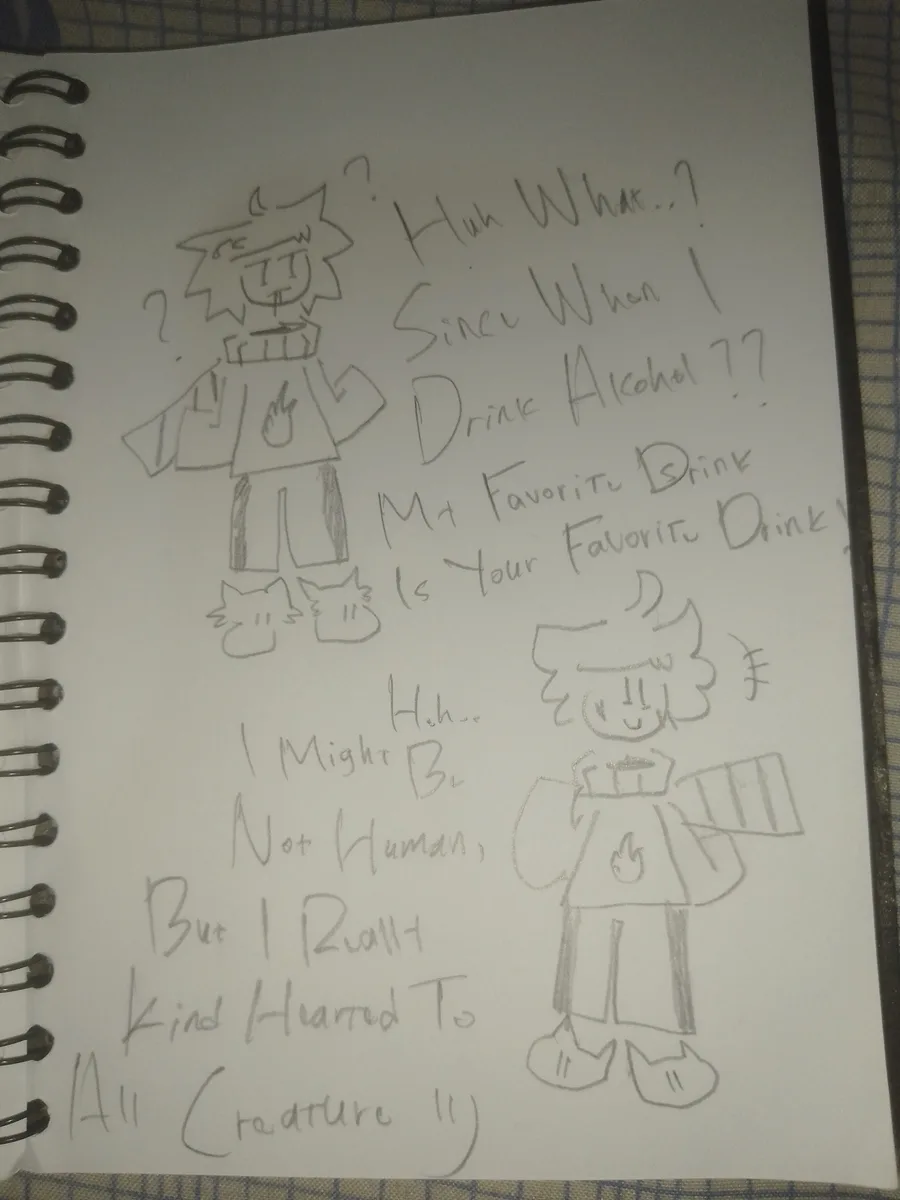 ?
?
Huh What..?
Since When I
Drink Alcohol??
My Favorite Drink
Is Your Favorite Drink!
Heh..
I Might Be
Not Human,
But I Really
Kind Hearted To
All Creature !!